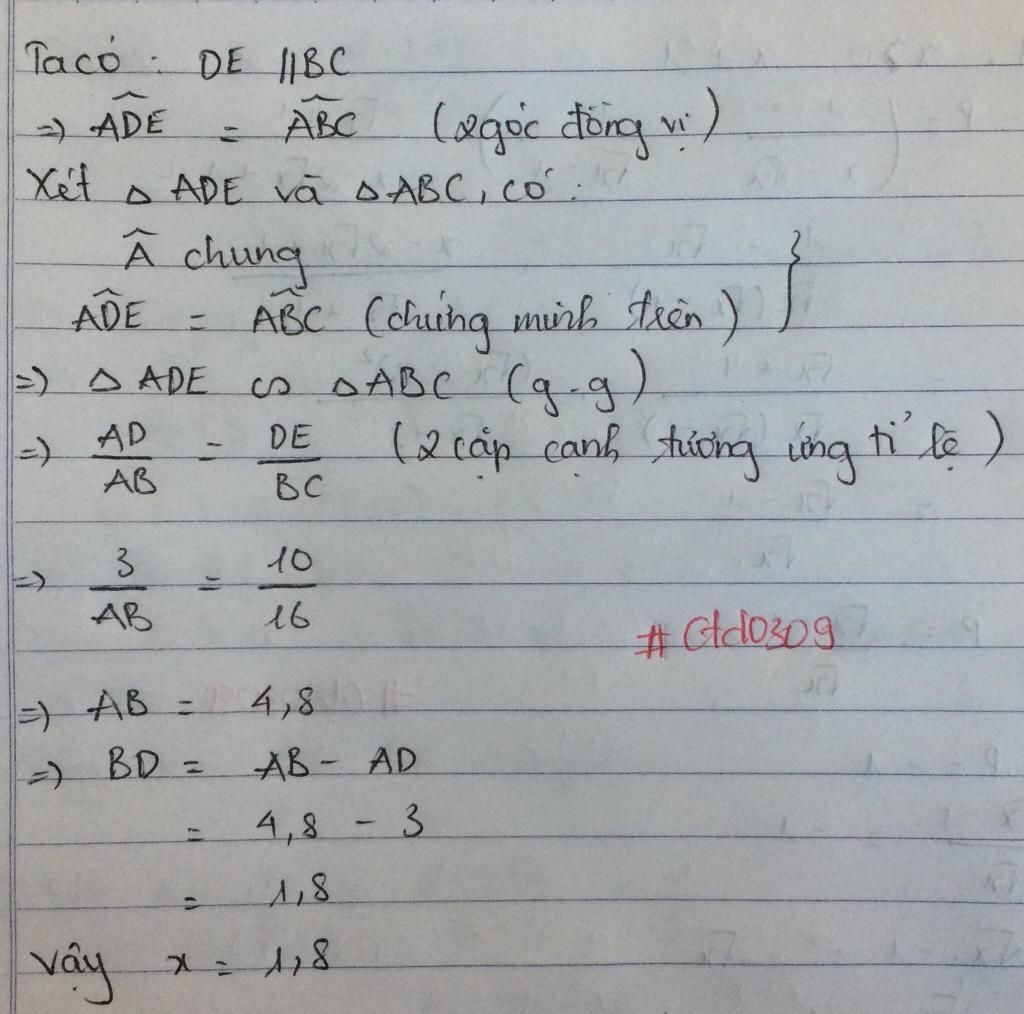 Ta có : DE // BC
=> ADE = ABC (2 góc đồng vị)
Xét △ ADE và △ ABC, có :
Â chung
ADE = ABC (chứng minh trên) }
=> △ ADE ∽ △ ABC (g-g)
=> AD/AB = DE/BC (2 cặp cạnh tương ứng tỉ lệ)
=> 3/AB = 10/16
# Gtd0309
=> AB = 4,8
=> BD = AB - AD
= 4,8 - 3
= 1,8
Vậy x = 1,8